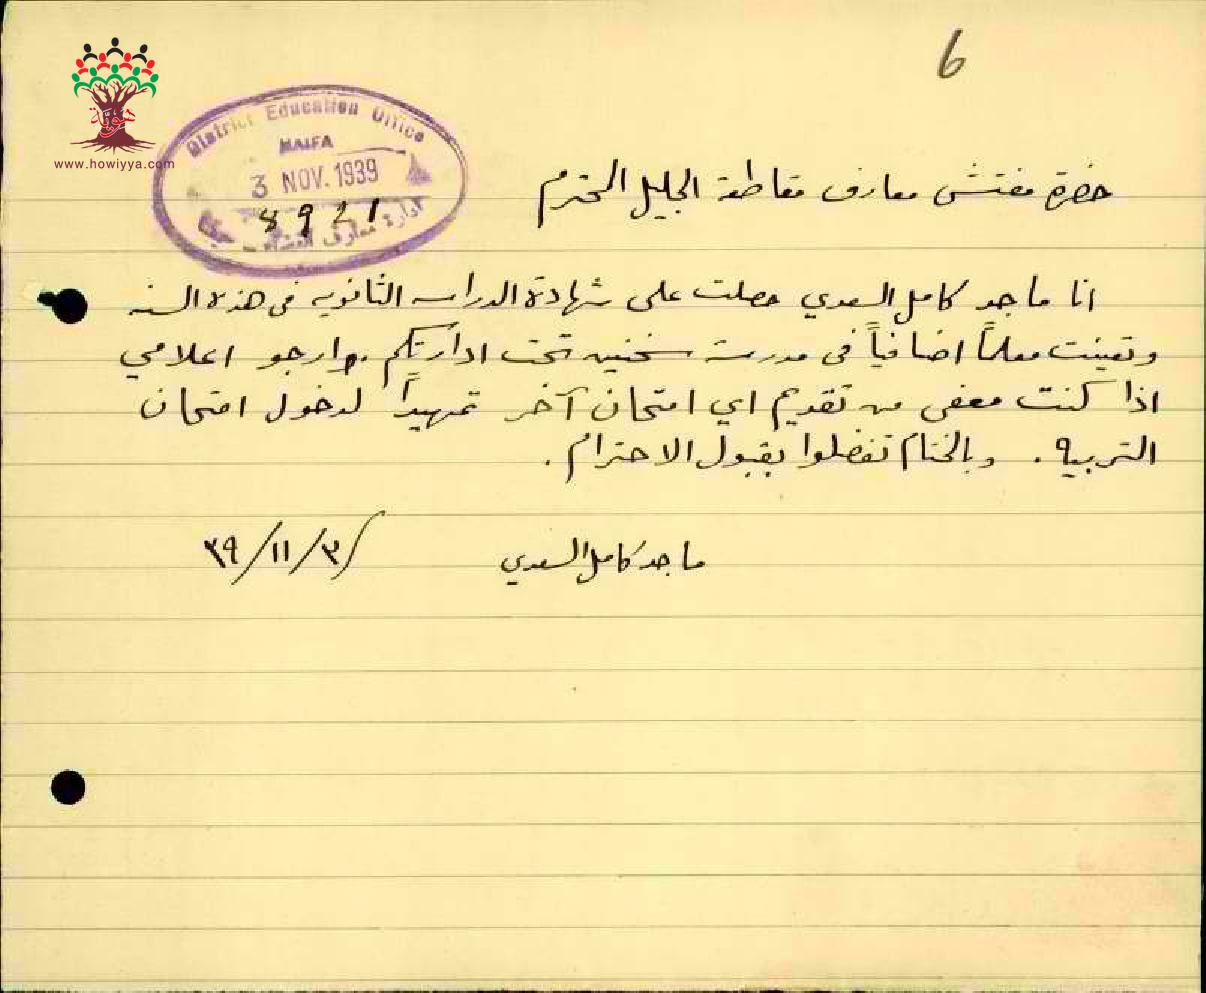 6
هوية
www.howiyya.com
District Education Office
HAIFA
3 NOV. 1939
8921
ادارة معارف
حضرة مفتش معارف مقاطعة الجليل المحترم
انا ماجد كامل السعدي حصلت على شهادة الدراسه الثانويه في هذه السنه
وتعينت معلماً اضافياً في مدرسة سخنيه تحت ادارتكم. وارجو اعلامي
اذا كنت معفى من تقديم اي امتحان آخر تمهيداً لدخول امتحان
التربيه. وبالختام تفضلوا بقبول الاحترام.
ماجد كامل السعدي ٣٩/١١/٣